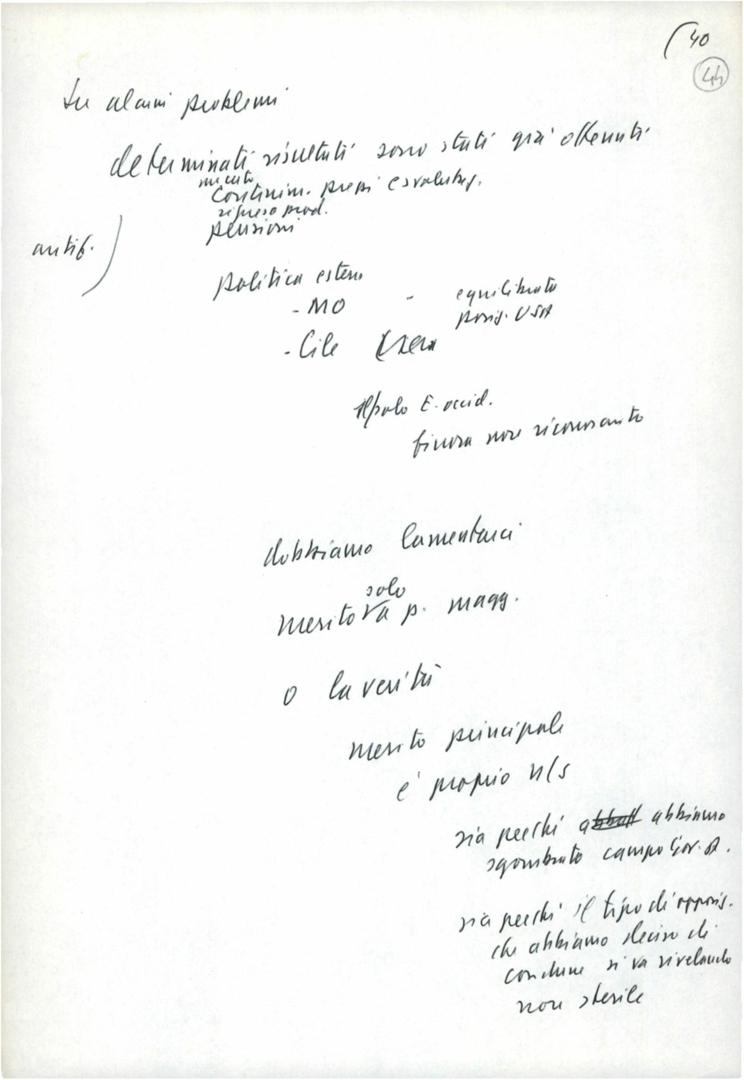 (40
44
su alcuni problemi
determinati risultati sono stati già ottenuti
contenim. prezzi e svalutaz.
ripresa prod.
pensioni
antif. )
politica estera
- MO - equilibrata
posiz. USA
- Cile
Il polo E. occid.
finora non riconosciuto
dobbiamo lamentarci
solo
merito va p. magg.
o la verità
merito principale
è proprio n/s
sia perché abbiamo
sgombrato campo Gov. A.
sia perché il tipo di opposiz.
che abbiamo deciso di
condurre si va rivelando
non sterile